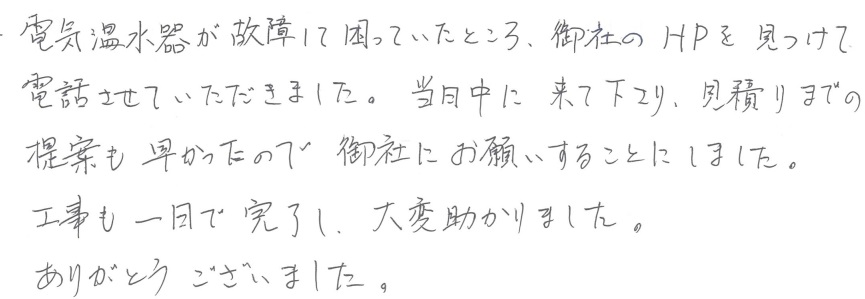 電気温水器が故障して困っていたところ、御社のHPを見つけて
電話させていただきました。当日中に来て下さり、見積りまでの
提案も早かったので御社にお願いすることにしました。
工事も一日で完了し、大変助かりました。
ありがとうございました。